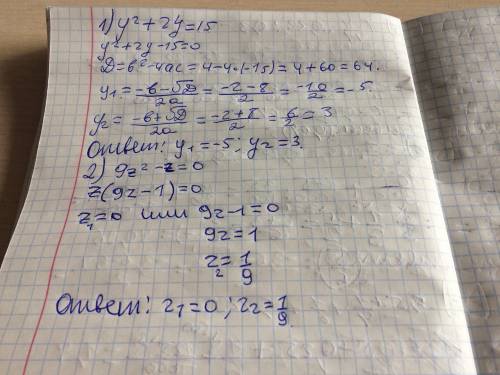 1) y²+2y=15
y²+2y-15=0
D=b²-4ac=4-4·(-15)=4+60=64.
y₁=(-b-√D)/2a=(-2-8)/2=-10/2=-5.
y₂=(-b+√D)/2a=(-2+8)/2=6/2=3
Ответ: y₁=-5; y₂=3.
2) 9z²-z=0
z(9z-1)=0
z₁=0 или 9z-1=0
9z=1
z₂=1/9
Ответ: z₁=0; z₂=1/9.